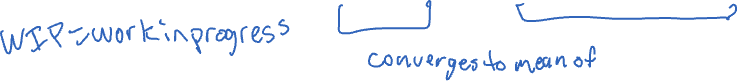 WIP=workinprogress
converges to mean of